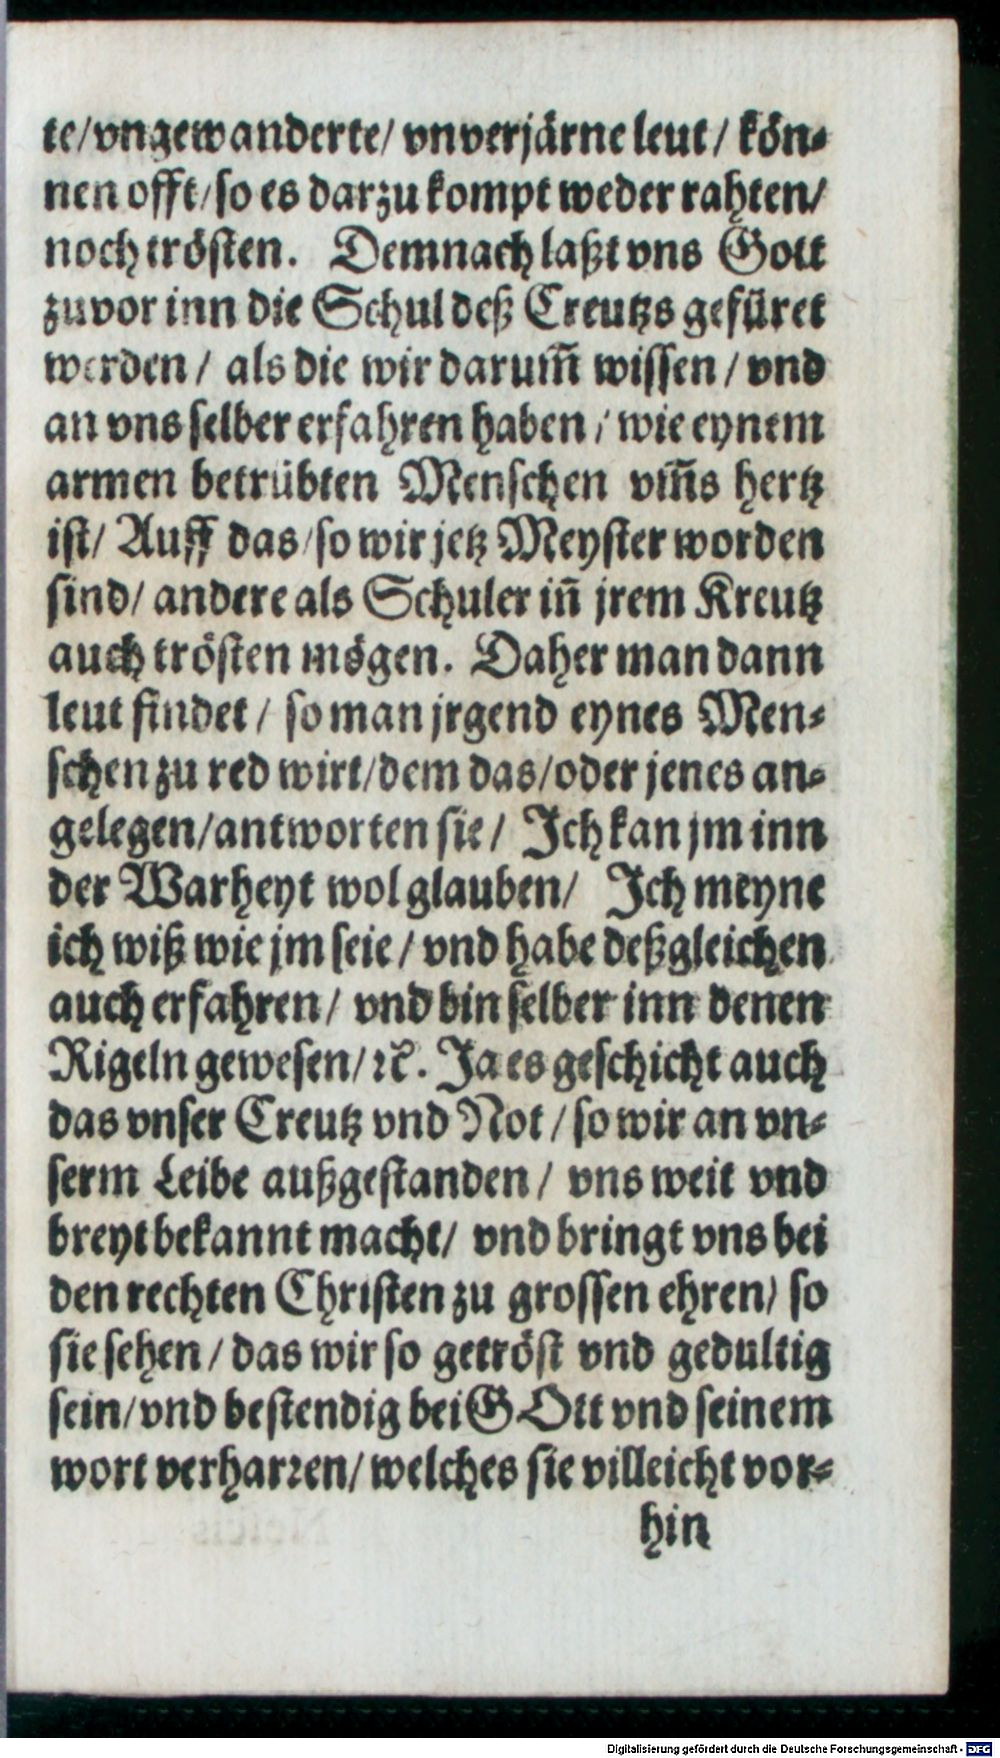 te/vngewanderte/ vnverjärne leut/ kön⸗
nen offt/so es darzu kompt weder rahten/
noch trösten. Demnach laßt vns Gott
zuvor inn die Schul deß Creutzs gefüret
werden/ als die wir darum̃ wissen/ vnd
an vns selber erfahren haben/ wie eynem
armen betrübten Menschen vm̃s hertz
ist/ Auff das/so wir jetz Meyster worden
sind/ andere als Schuler iñ jrem Kreutz
auch trösten mögen. Daher man dann
leut findet/ so man jrgend eynes Men⸗
schen zu red wirt/dem das/oder jenes an⸗
gelegen/antworten sie/ Ich kan jm inn
der Warheyt wol glauben/ Ich meyne
ich wiß wie jm seie/ vnd habe deßgleichen
auch erfahren/ vnd bin selber inn denen
Rigeln gewesen/ꝛc. Ja es geschicht auch
das vnser Creutz vnd Not/ so wir an vn⸗
serm Leibe außgestanden/ vns weit vnd
breyt bekannt macht/ vnd bringt vns bei
den rechten Christen zu grossen ehren/ so
sie sehen/ das wir so getröst vnd gedultig
sein/vnd bestendig bei GOtt vnd seinem
wort verharꝛen/ welches sie villeicht vor⸗
hin
Digitalisierung gefördert durch die Deutsche Forschungsgemeinschaft - DFG